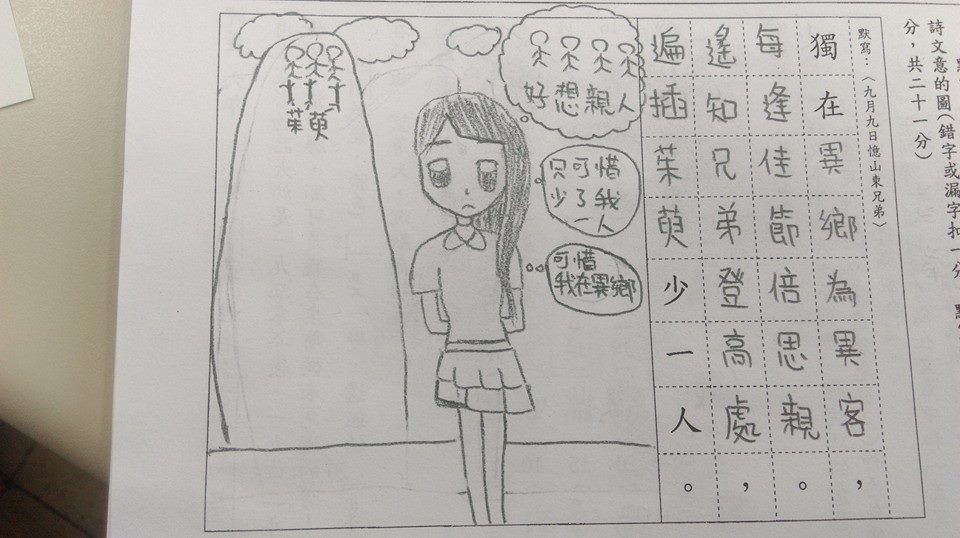 詩文意的圖(錯字或漏字扣一分
分，共二十一分)
默寫：〈九月九日憶山東兄弟〉
獨在異鄉為異客，
每逢佳節倍思親。
遙知兄弟登高處，
遍插茱萸少一人。
好想親人
只可惜
少了我
一人
可惜
我在異鄉
茱萸